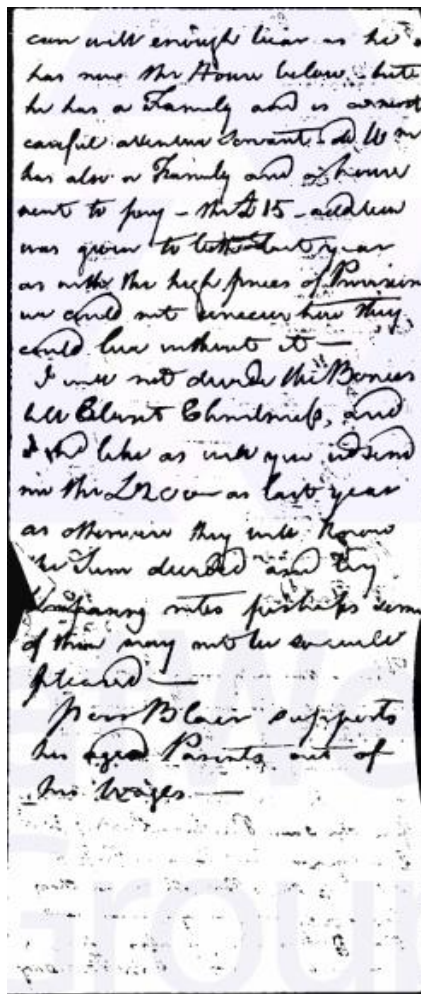 can well enough hear as he
has now the House below - but
he has a Family and is a most
careful attentive Servant - 
has also a Family and a house
rent to pay - the £15 - addition
was given to both last year
as with the high prices of Provision
we could not conceive how they
could live without it —
I will not divide the Bonus
till about Christmas, and
I shd like as well you wd send
me the £200 - as last year
as otherwise they will know
the Sum divided and by
Comparing notes perhaps some
of them may not be so well
pleased —
Poor Blair supports
his aged Parents out of
his Wages —